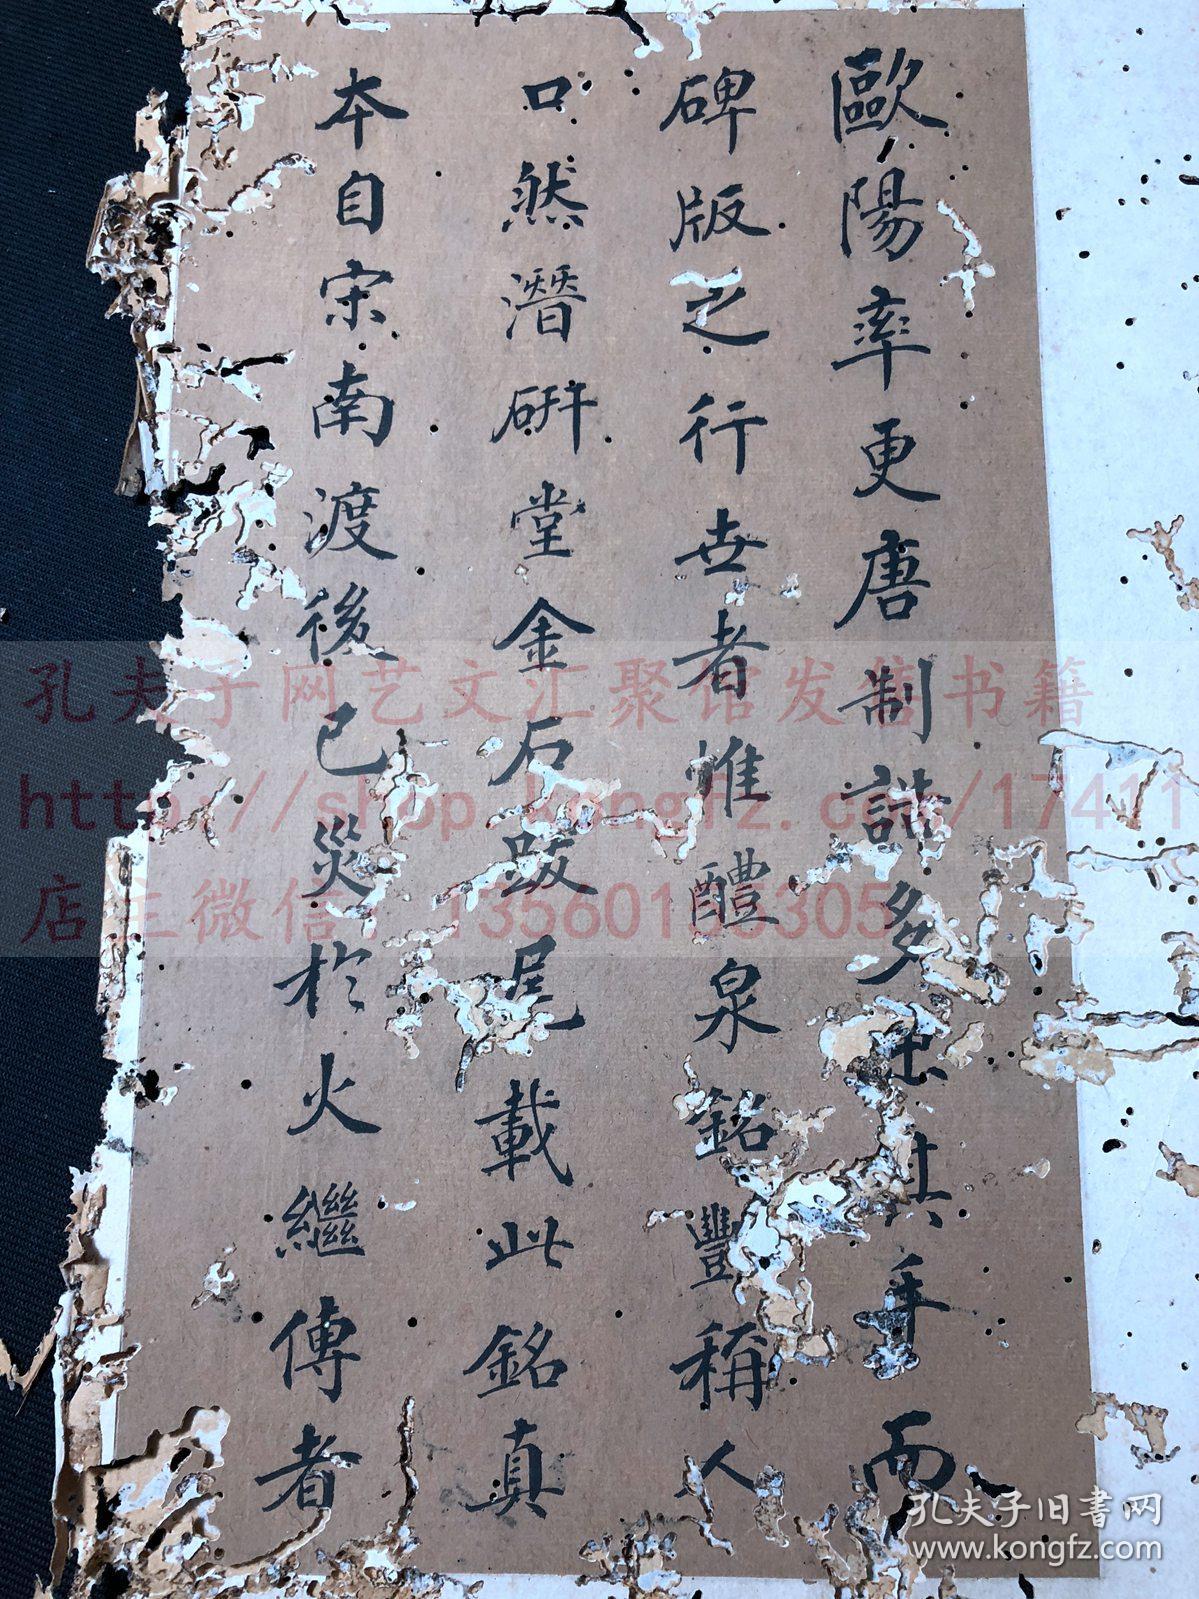 歐陽率更唐制誥多出其手而
碑版之行世者惟醴泉銘豐稱人
口然潛研堂金石跋尾載此銘真
本自宋南渡後已災於火繼傳者
孔夫子网艺文汇聚馆发售书籍
http://shop.kongfz.com/17411
店主微信
孔夫子旧書网
www.kongfz.com